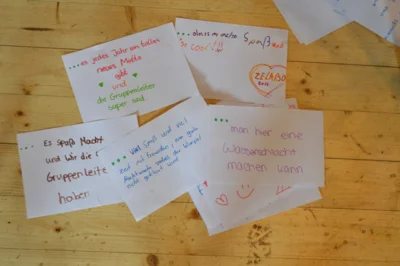 ...es jedes Jahr ein tolles
neues Motto
gibt
und
die Gruppenleiter
super sind.
...dass es mega Spaß macht
so cool!!!
ZELABO
...
Es Spaß Macht
und wir die
Gruppenleite
haben
... viel Spaß und viel
Zeit mit Freunden, eine gute
nicht geklaut wird
...
man hier eine
Wasserschlacht
machen kann